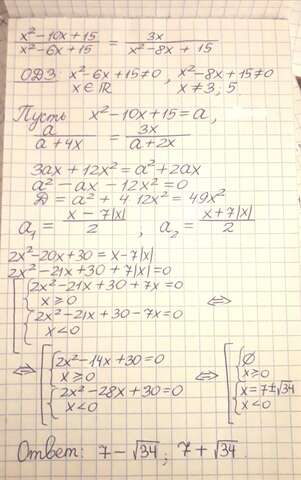 x²-10x+15 / x²-6x+15 = 3x / x²-8x+15
ОДЗ: x²-6x+15≠0, x²-8x+15≠0
x∈ℝ x≠3; 5.
Пусть x²-10x+15=a,
a / a+4x = 3x / a+2x
3ax+12x²=a²+2ax
a²-ax-12x²=0
D=a²+4·12x²=49x²
a₁ = x-7|x| / 2, a₂ = x+7|x| / 2
2x²-20x+30=x-7|x|
2x²-21x+30+7|x|=0
[ { 2x²-21x+30+7x=0
x≥0 ⇔
{ 2x²-21x+30-7x=0
x<0
⇔ [ { 2x²-14x+30=0 ⇔ [ { ∅
x≥0 x≥0
{ 2x²-28x+30=0 { x=7±√34
x<0 x<0
Ответ: 7-√34; 7+√34.